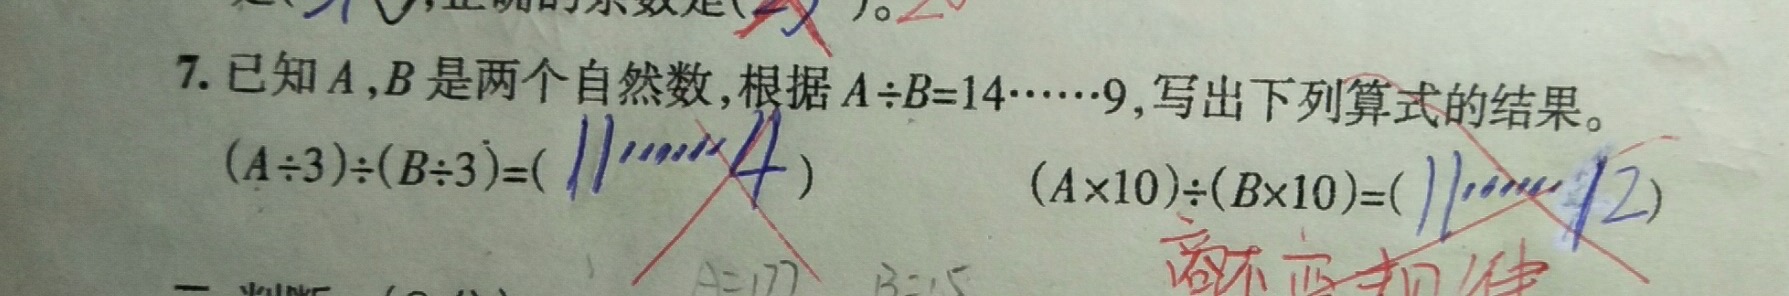 正确的余数是( )。
7. 已知 A,B 是两个自然数,根据 A÷B=14……9,写出下列算式的结果。
(A÷3)÷(B÷3)=( 11……4 ) (A×10)÷(B×10)=( 11……12 )
商不变规律
A=177 B=15
二、判断。